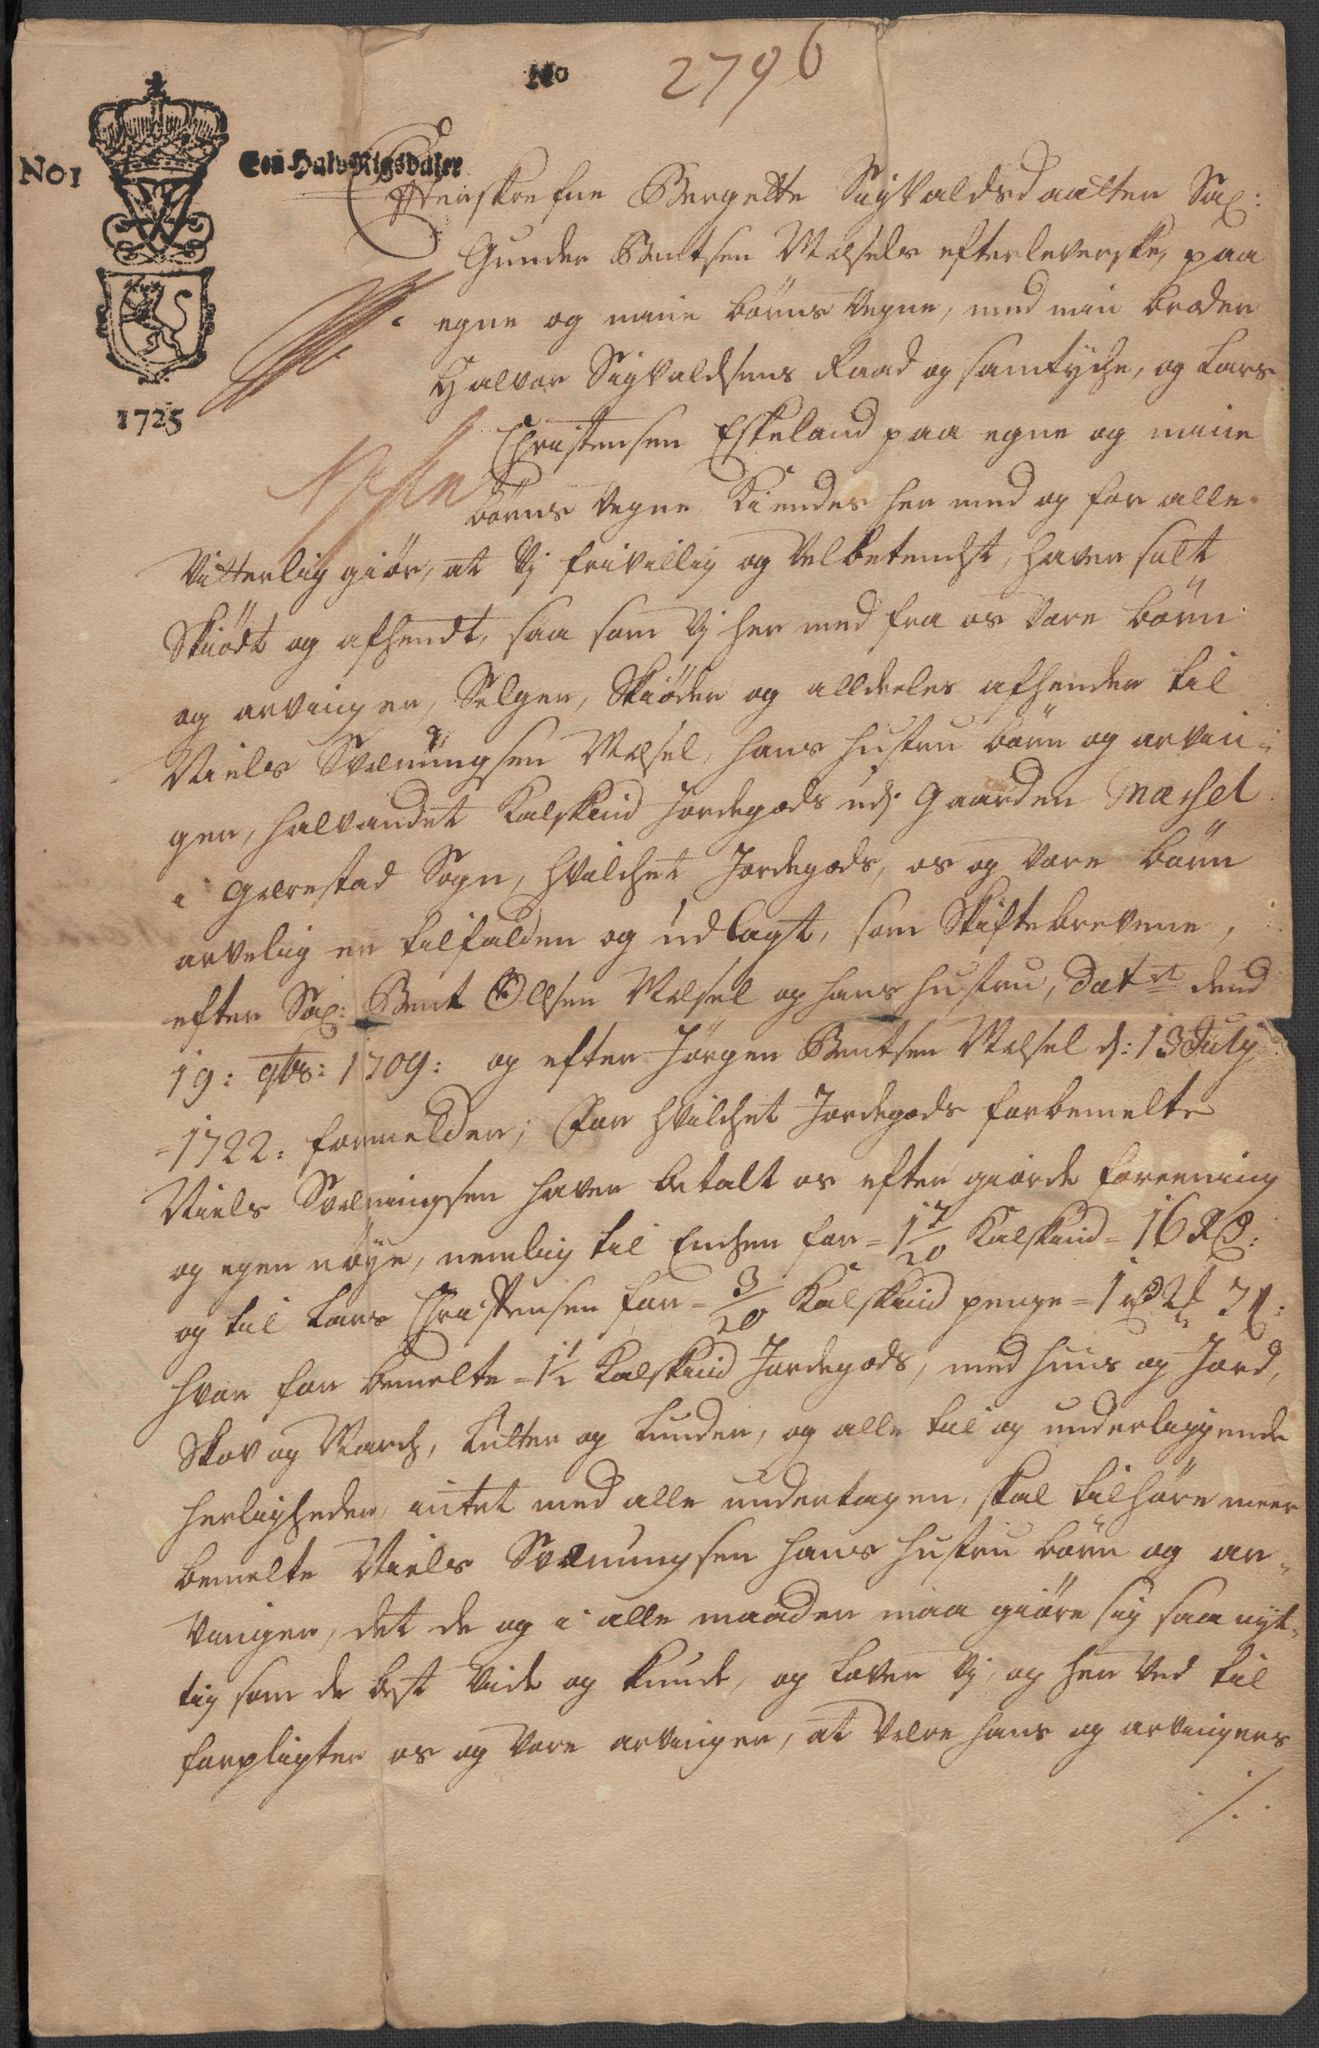 No 2796
No 1
Een Halv Rigsdaler
1725
Efterskrefne Bergette Sigvaldsdaatter Sal:
Gunder Bentsen Mæsels efterleverske, paa
egne og mine börns vegne, med min broder
Halvor Sigvaldsens Raad og samtyche, og Lars
Christensen Eskeland paa egne og mine
börns vegne kiendes her med og for alle
vitterlig giör, at vj frivillig og velbetencht, haver solt
Skiödt og afhendt, saa som vj her med fra os vore börn
og arvinger, Selger, Skiöder og alldeeles afhender til
Niels Svænungsen Mæsel, hans hustru börn og arvin-
ger, halvandet Kalfskind Jordegods udj gaarden Mæsel
i Gierestad Sogn, hvilchet Jordegods, os og vore börn
arvelig er tilfalden og udlagt, som Skiftebrevene,
efter Sal: Bent Ollsen Mæsel og hans hustru, Dat: dend
19: 9br: 1709: og efter Jörgen Bentsen Mæsel d: 13 July
1722: formelder; For hvilchet Jordegods forbemelte
Niels Svæningsen haver betalt os efter giorde foreening
og egen nöye, nemlig til Enchen for = 1 7/20 Kalfskind = 16 Rd:
og til Lars Christensen for = 3/20 Kalfskind penge = 1 rd 2
hvor for bemelte = 1 1/2 Kalfskind Jordegods, med huus og Jord,
Skov og March, Lutter og Lunder, og alle til og underliggende
herligheder, intet med alle undertagen, skal tilhöre meer
bemelte Niels Svænungsen hans hustru börn og ar-
vinger, det de og i alle maader maa giöre sig saa nyt-
tig som de best vide og kunde, og lover vj, og her ved til
forpligter os og vore arvinger, at være hans og arvingers
./.